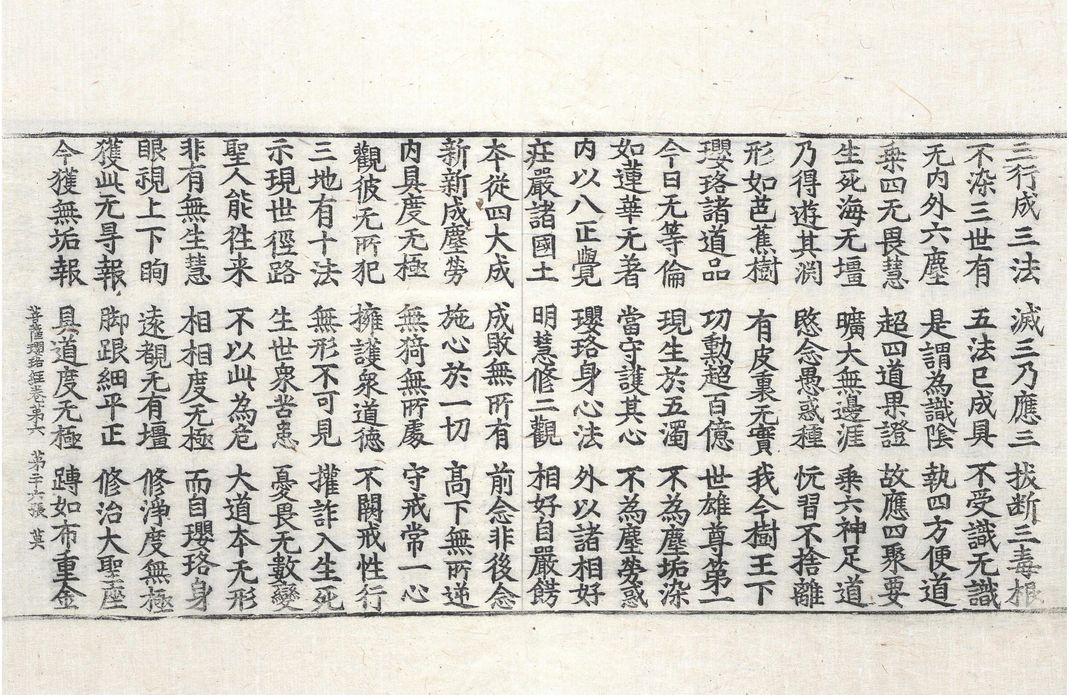 三行成三法 滅三乃應三 拔断三毒根
不染三世有 五法已成具 不受識无識
无内外六塵 是謂為識陰 執四方便道
乗四无畏慧 超四道果證 故應四聚要
生死海无壃 曠大無邊涯 乗六神足道
乃得遊其渕 愍念愚惑種 忨習不捨離
形如芭蕉樹 有皮裏无實 我今樹王下
瓔珞諸道品 功勳超百億 世雄尊第一
今日无等倫 現生於五濁 不為塵垢染
如蓮華无著 當守護其心 不為塵勞惑
内以八正覺 瓔珞身心法 外以諸相好
莊嚴諸國土 明慧修二觀 相好自嚴餝
本從四大成 成敗無所有 前念非後念
新新成塵勞 施心於一切 高下無所逆
内具度无極 無猗無所處 守戒常一心
觀彼无所犯 擁護衆道德 不闕戒性行
三地有十法 無形不可見 攉詐入生死
示現世徑路 生世衆苦患 憂畏无數變
聖人能徃来 不以此為危 大道本无形
非有無生慧 相相度无極 而自瓔珞身
眼視上下眴 遠覩无有壃 修浄度無極
獲此无㝵報 脚跟細平正 修治大聖座
今獲無垢報 具道度无極 蹲如布重金
菩薩瓔珞経卷苐六 苐二十六張 莫